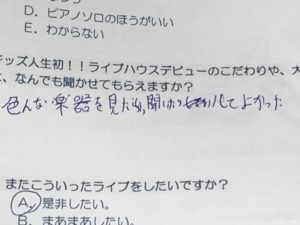 D. ピアノソロのほうがいい
E. わからない
キッズ人生初！！ライブハウスデビューのこだわりや、大
なんでも聞かせてもらえますか？
色んな楽器を見たり、聞いたりしてよかった
またこういったライブをしたいですか？
A. 是非したい。
B. まあまあしたい。